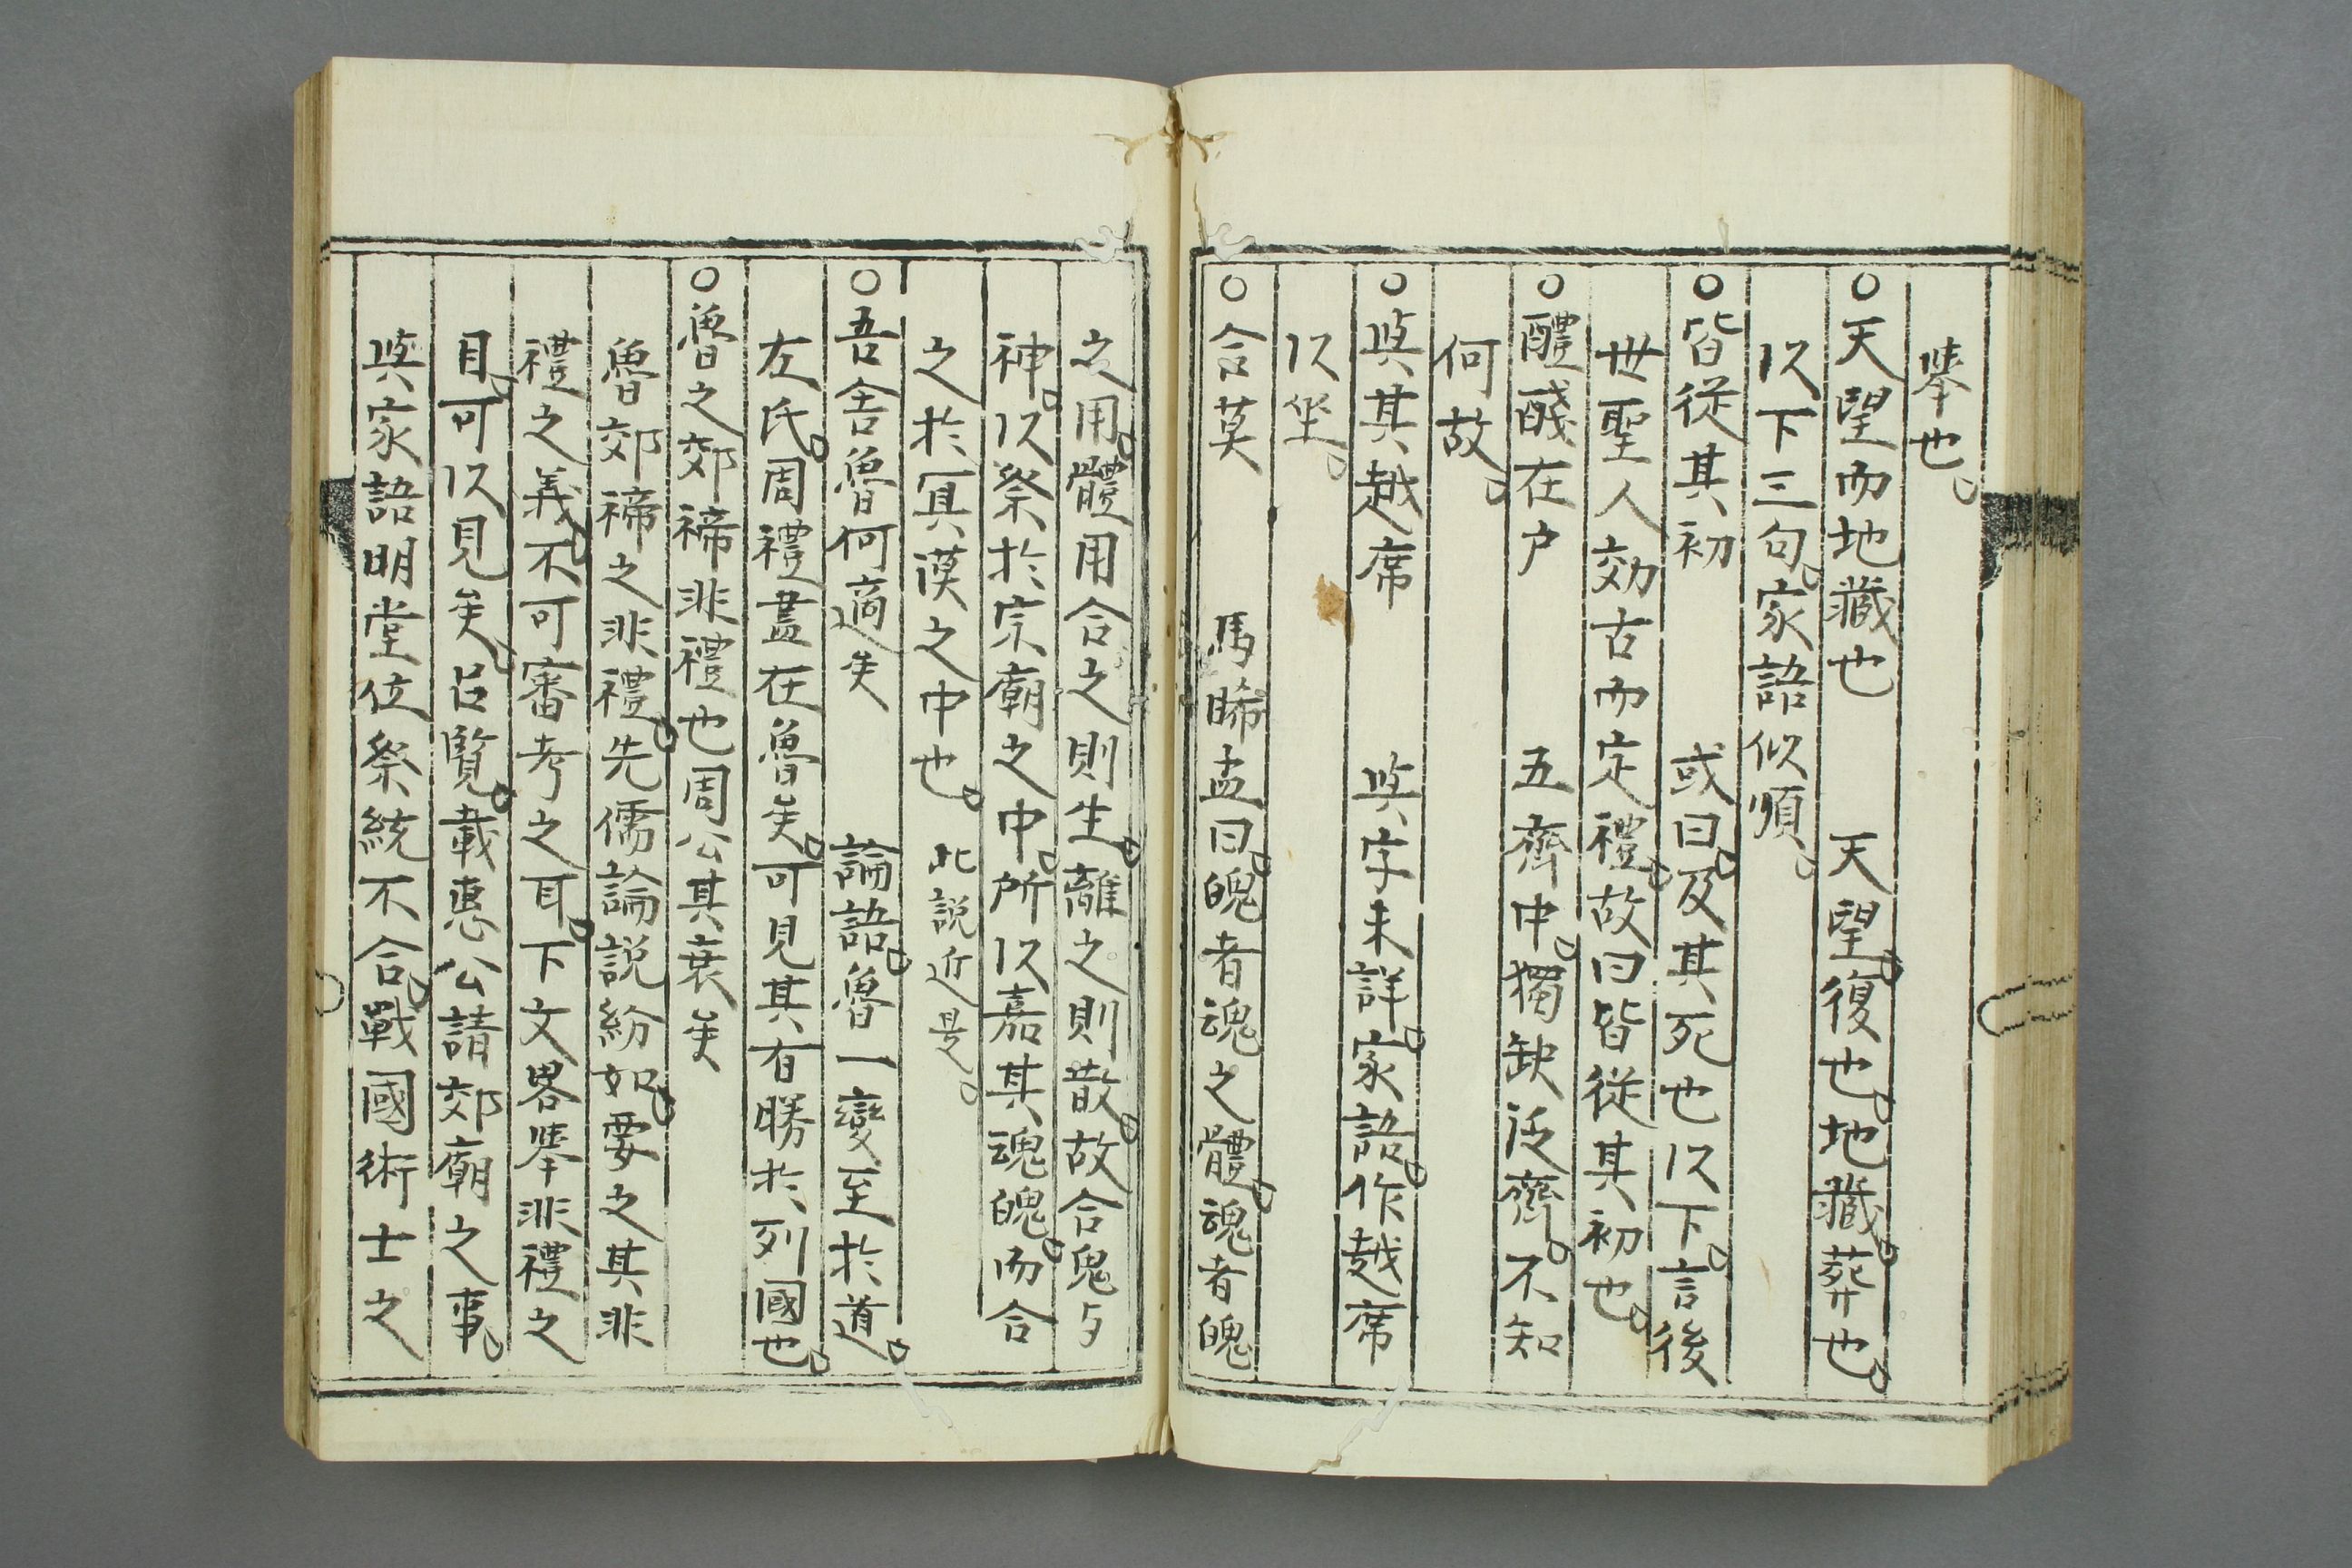 舉也。
○天望而地藏也　天望。復也。地藏。葬也。
以下三句。家語似順。
○皆從其初　或曰。及其死也以下。言後
世聖人効古而定禮。故曰皆從其初也。
○醴醆在戶　五齊中。獨缺泛齊。不知
何故。
○與其越席　與字未詳。家語。作越席
以坐。
○合莫　馬晞孟曰。魄者魂之體。魂者魄
之用。體用合之則生。離之則散。故合鬼与
神。以祭於宗廟之中。所以嘉其魂魄。而合
之於冥漠之中也。此說近是。
○吾舍魯何適矣　論語。魯一變至於道。
左氏。周禮盡在魯矣。可見其有勝於列國也。
○魯之郊禘非禮也周公其衰矣
魯郊禘之非禮。先儒論說紛如。要之其非
禮之義。不可審考之耳。下文畧舉非禮之
目。可以見矣。呂覧。載惠公請郊廟之事。
與家語明堂位祭統不合。戰國術士之